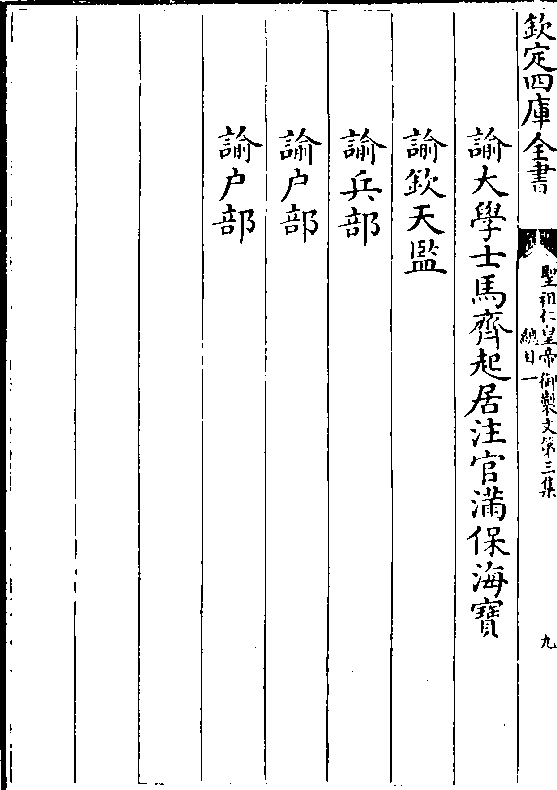 欽定四庫全書
聖祖仁皇帝御製文第三集
總目一
九
諭大學士馬齊起居注官滿保海寶
諭欽天監
諭兵部
諭户部
諭户部